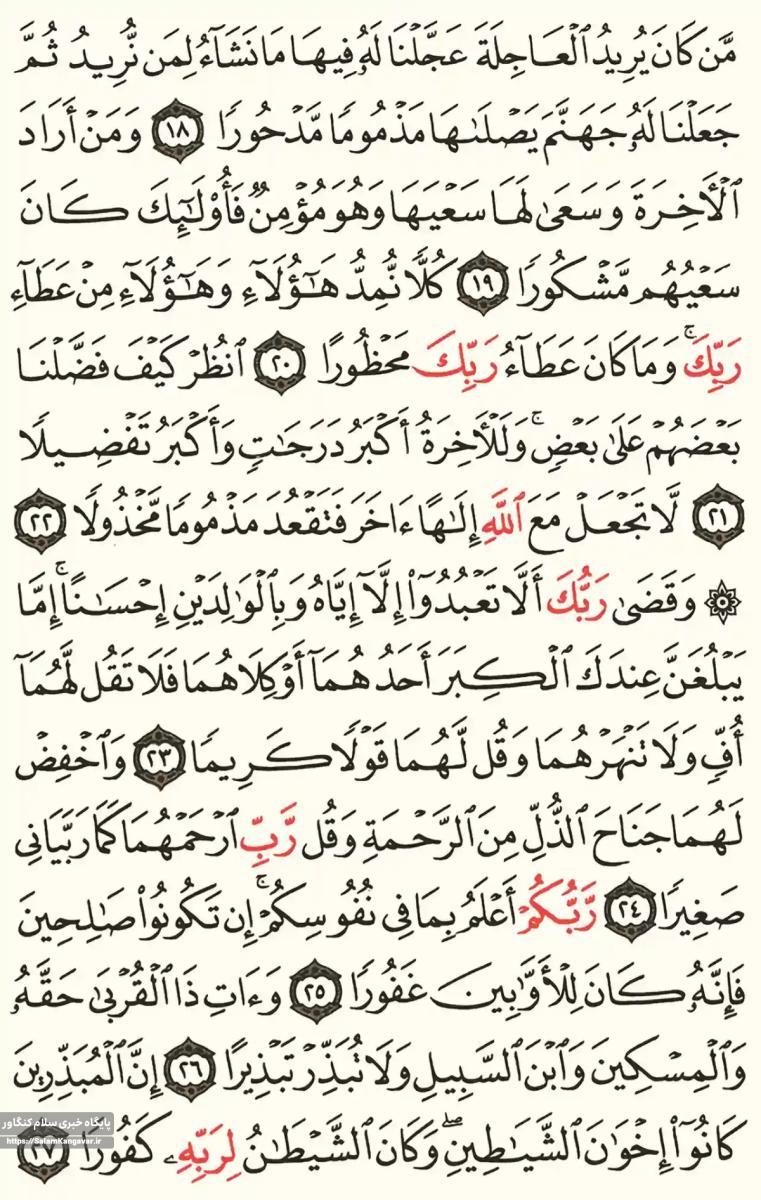 مَّن كَانَ يُرِيدُ ٱلْعَاجِلَةَ عَجَّلْنَا لَهُۥ فِيهَا مَا نَشَآءُ لِمَن نُّرِيدُ ثُمَّ
جَعَلْنَا لَهُۥ جَهَنَّمَ يَصْلَىٰهَا مَذْمُومًا مَّدْحُورًا ١٨ وَمَنْ أَرَادَ
ٱلْأَخِرَةَ وَسَعَىٰ لَهَا سَعْيَهَا وَهُوَ مُؤْمِنٌ فَأُو۟لَـٰٓئِكَ كَانَ
سَعْيُهُم مَّشْكُورًا ١٩ كُلًّا نُّمِدُّ هَـٰٓؤُلَآءِ وَهَـٰٓؤُلَآءِ مِنْ عَطَآءِ
رَبِّكَ ۚ وَمَا كَانَ عَطَآءُ رَبِّكَ مَحْظُورًا ٢٠ ٱنظُرْ كَيْفَ فَضَّلْنَا
بَعْضَهُمْ عَلَىٰ بَعْضٍ ۚ وَلَلْأَخِرَةُ أَكْبَرُ دَرَجَـٰتٍ وَأَكْبَرُ تَفْضِيلًا
٢١ لَّا تَجْعَلْ مَعَ ٱللَّهِ إِلَـٰهًا ءَاخَرَ فَتَقْعُدَ مَذْمُومًا مَّخْذُولًا ٢٢
۞ وَقَضَىٰ رَبُّكَ أَلَّا تَعْبُدُوٓا۟ إِلَّآ إِيَّاهُ وَبِٱلْوَٰلِدَيْنِ إِحْسَـٰنًا ۚ إِمَّا
يَبْلُغَنَّ عِندَكَ ٱلْكِبَرَ أَحَدُهُمَآ أَوْ كِلَاهُمَا فَلَا تَقُل لَّهُمَآ
أُفٍّ وَلَا تَنْهَرْهُمَا وَقُل لَّهُمَا قَوْلًا كَرِيمًا ٢٣ وَٱخْفِضْ
لَهُمَا جَنَاحَ ٱلذُّلِّ مِنَ ٱلرَّحْمَةِ وَقُل رَّبِّ ٱرْحَمْهُمَا كَمَا رَبَّيَانِى
صَغِيرًا ٢٤ رَّبُّكُمْ أَعْلَمُ بِمَا فِى نُفُوسِكُمْ ۚ إِن تَكُونُوا۟ صَـٰلِحِينَ
فَإِنَّهُۥ كَانَ لِلْأَوَّٰبِينَ غَفُورًا ٢٥ وَءَاتِ ذَا ٱلْقُرْبَىٰ حَقَّهُۥ
وَٱلْمِسْكِينَ وَٱبْنَ ٱلسَّبِيلِ وَلَا تُبَذِّرْ تَبْذِيرًا ٢٦ إِنَّ ٱلْمُبَذِّرِينَ
كَانُوٓا۟ إِخْوَٰنَ ٱلشَّيَـٰطِينِ ۖ وَكَانَ ٱلشَّيْطَـٰنُ لِرَبِّهِۦ كَفُورًا ٢٧
پایگاه خبری سلام کنگاور
https://SalamKangavar.ir